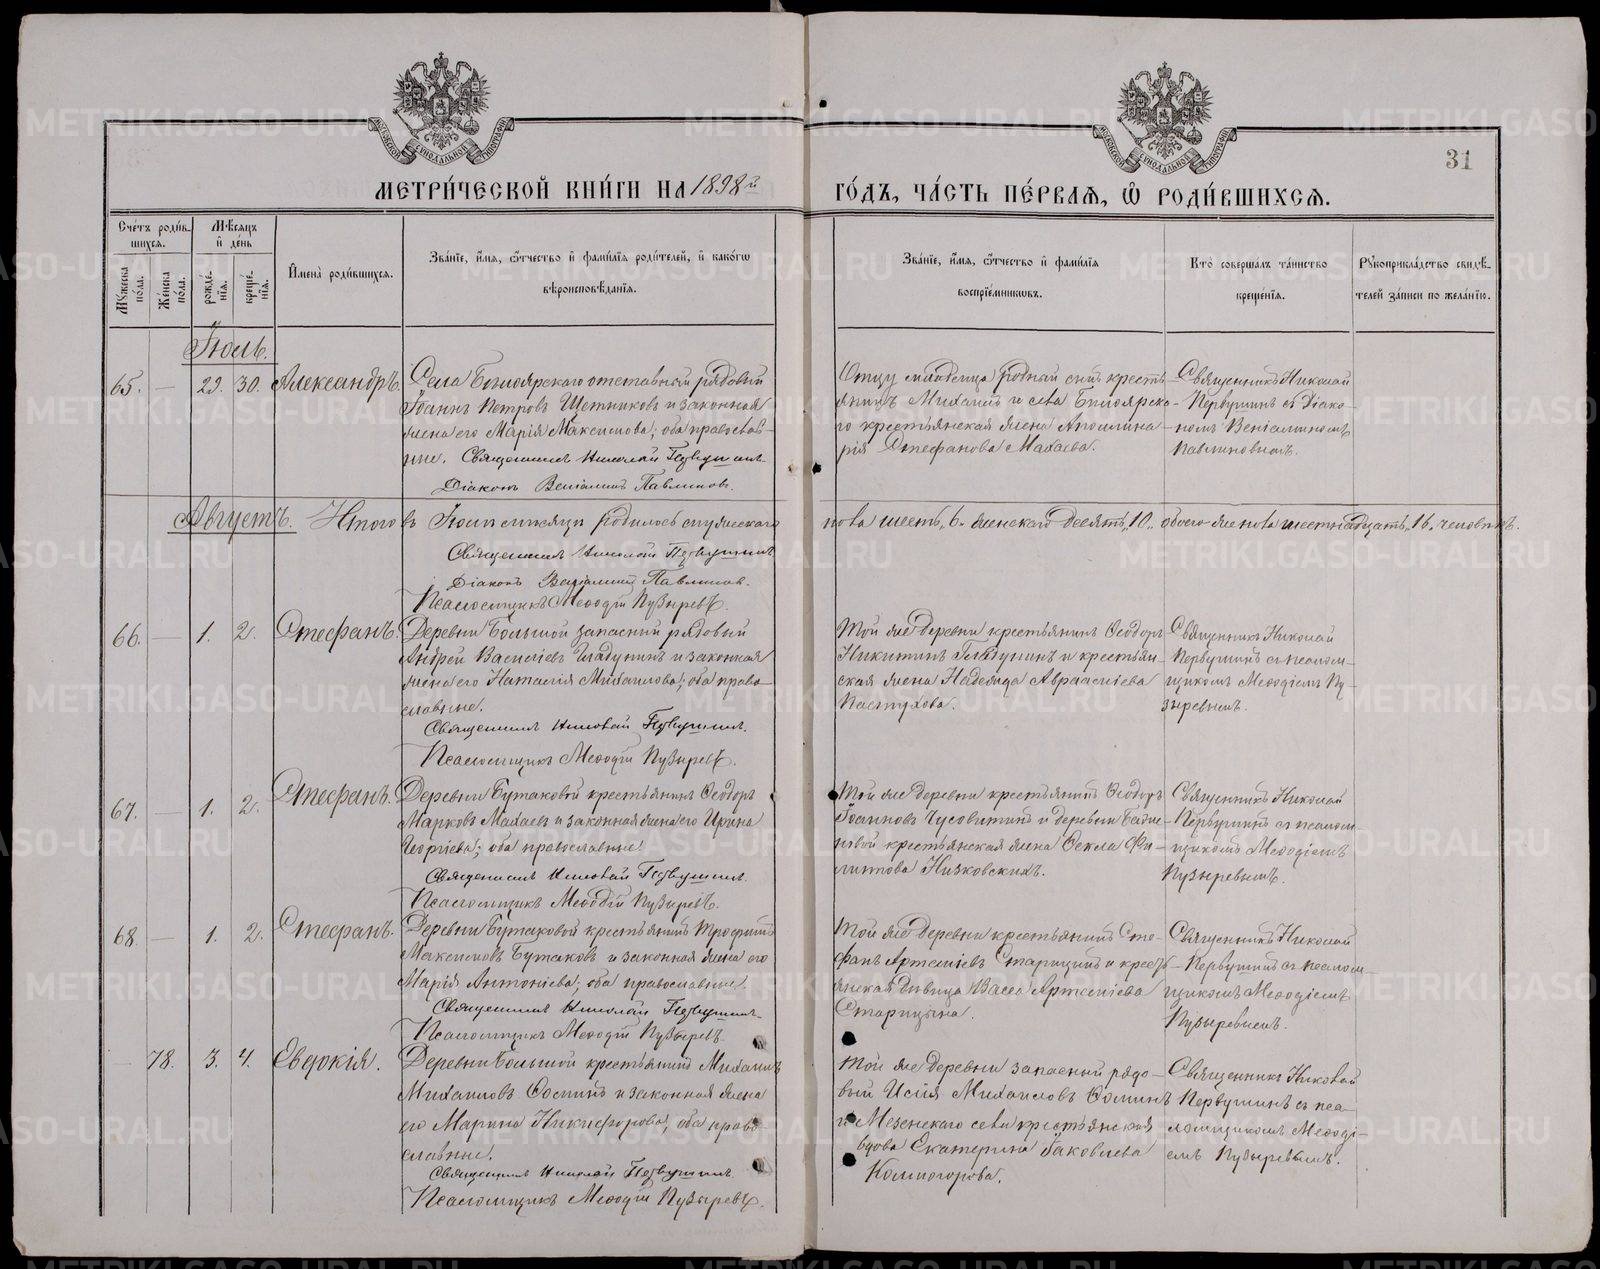 31
МЕТРИЧЕСКОЙ КНИГИ НА 1898й ГОДЪ, ЧАСТЬ ПЕРВАЯ, Ѡ РОДИВШИХСЯ.
Счетъ родившихся.
Мужеска пола.
Женска пола.
Мѣсяцъ и день
рожденія.
крещенія.
Имена родившихся.
Званіе, имя, ѻтчество и фамилія родителей, и какогѡ
вѣроисповѣданія.
Званіе, имя, ѻтчество и фамилія
воспріемниковъ.
Кто совершалъ таинство
крещенія.
Рукоприкладство свидѣ-
телей записи по желанію.
Іюль.
65. — 29. 30. Александръ.
Села отставной рядовой
Іоаннъ Петровъ Щетниковъ и законная
жена его Марія Максимова; оба православ-
ные. Священникъ Николай Первушинъ.
Діаконъ Веніаминъ Павлиновъ.
родный сынъ кресть-
янинъ Михаилъ и села
го крестьянская жена
рія Стефанова Махаева.
Священникъ Николай
Первушинъ съ Діако-
номъ Веніаминомъ
Павлиновымъ.
Августъ.
Итого въ Іюлѣ мѣсяцѣ родилось мужескаго пола шесть „6„ женскаго десять „10„ обоего же пола шестнадцать „16„ человѣкъ.
Священникъ Николай Первушинъ
Діаконъ Веніаминъ Павлиновъ.
Псаломщикъ Меѳодій Пузыревъ.
66. — 1. 2. Стефанъ.
Деревни Большой запасный рядовый
Андрей Васильевъ и законная
жена его Наталія Михаилова; оба право-
славные.
Священникъ Николай Первушинъ.
Псаломщикъ Меѳодій Пузыревъ.
Той же деревни крестьянинъ Ѳеодоръ
Никитинъ и крестьян-
ская жена Надежда
Пастухова.
Священникъ Николай
Первушинъ съ псалом-
щикомъ Меѳодіемъ Пу-
зыревымъ.
67. — 1. 2. Стефанъ.
Деревни Бутаковой крестьянинъ Ѳеодоръ
Марковъ Махаевъ и законная жена его Ирина
Георгіева; оба православные.
Священникъ Николай Первушинъ.
Псаломщикъ Меѳодій Пузыревъ.
Той же деревни крестьянинъ Ѳеодоръ
Іоанновъ Чусовитинъ и деревни
крестьянская жена Ѳекла Фи-
липпова Низковскихъ.
Священникъ Николай
Первушинъ съ псалом-
щикомъ Меѳодіемъ
Пузыревымъ.
68. — 1. 2. Стефанъ.
Деревни Бутаковой крестьянинъ Трофимъ
Максимовъ Бутаковъ и законная жена его
Марія Антоніева; оба православные.
Священникъ Николай Первушинъ.
Псаломщикъ Меѳодій Пузыревъ.
Той же деревни крестьянинъ Сте-
фанъ Артеміевъ Старицынъ и кресть-
янская дѣвица Васса Артеміева
Старицына.
Священникъ Николай
Первушинъ съ псалом-
щикомъ Меѳодіемъ
Пузыревымъ.
— 78. 3. 4. Евдокія.
Деревни Большой крестьянинъ Михаилъ
Михаиловъ Ѳоминъ и законная жена
его Марина Никифорова; оба право-
славные.
Священникъ Николай Первушинъ.
Псаломщикъ Меѳодій Пузыревъ.
Той же деревни запасный рядо-
вый Исаія Михаиловъ Ѳоминъ
и Мезенскаго села крестьянская
вдова Екатерина Іаковлева
Колмогорова.
Священникъ Николай
Первушинъ съ пса-
ломщикомъ Меѳоді-
емъ Пузыревымъ.
METRIKI.GASO-URAL.RU